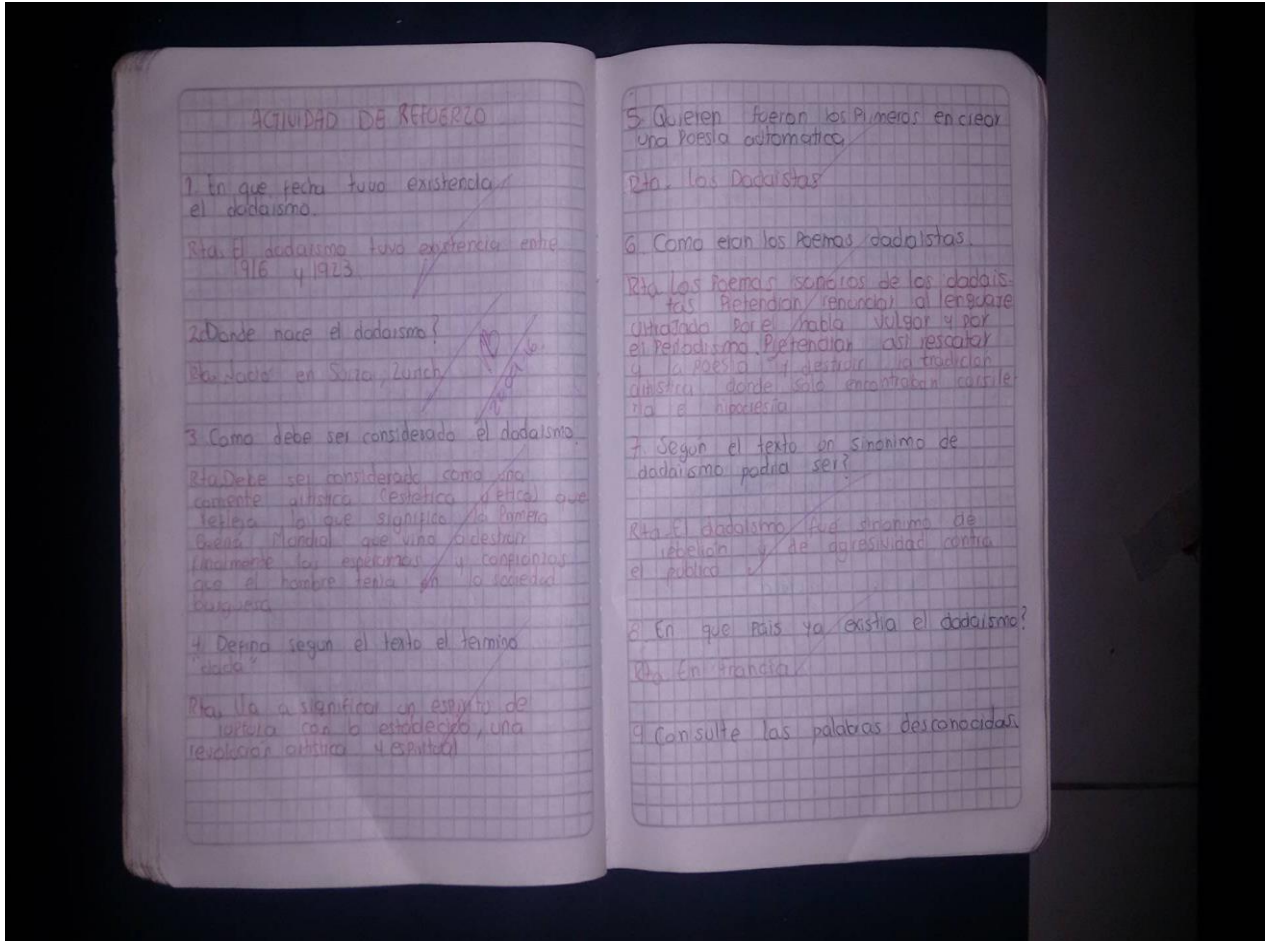 ACTIVIDAD DE REFUERZO
1. En que fecha tuvo existencia
el dadaismo.
Rta. El dadaismo tuvo existencia entre
1916 y 1923
2. Donde nace el dadaismo?
Rta. Nacio en Suiza, Zurich
3. Como debe ser considerado el dadaismo.
Rta. Debe ser considerado como una
corriente artistica (estetica y etica) que
refleja, lo que significo la Primera
Guerra Mundial que vino a destruir
finalmente las esperanzas y confianzas
que el hombre tenia en la sociedad
burguesa
4. Defina segun el texto el termino
"dada"
Rta. Va a significar un espiritu de
ruptura con lo establecido, una
revolucion artistica y espiritual
5. Quienen fueron los Primeros en crear
una Poesia automatica
Rta. Los Dadaistas
6. Como eran los Poemas dadaistas
Rta. Los Poemas sonoros de los dadais-
tas Pretendian renunciar al lenguaje
por el habla vulgar y por
el Periodismo. Pretendian asi rescatar
a la Poesia y destruir la tradicion
artistica donde solo encontraban
e hipocresia
7. Segun el texto un sinonimo de
dadaismo podria ser?
Rta. El dadaismo fue sinonimo de
rebelion y de agresividad contra
el publico
8. En que Pais ya existia el dadaismo?
Rta. En Francia
9. Consulte las palabras desconocidas.